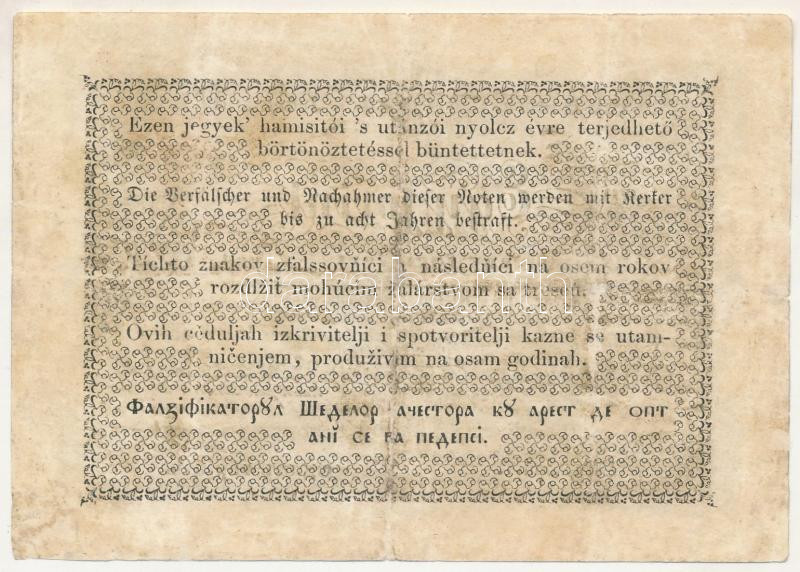 Ezen jegyek' hamisitói 's utánzói nyolcz évre terjedhető
börtönöztetéssel büntettetnek.
Die Verfälscher und Nachahmer dieser Noten werden mit Kerker
bis zu acht Jahren bestraft.
Tíchto znakov zfalssovňíci a následňíci na osem rokov
rozdlžiť mohúcím žalárstvom sa trescú.
Ovih céduljah izkrivitelji i spotvoritelji kazne se utam-
ničenjem, produživim na osam godinah.
Фалзіфікаторꙋл Шеделор ачестора кꙋ арест де опт
анĭ се ва педепсі.
darabanth